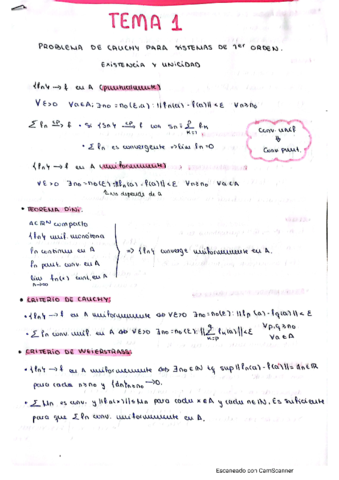 TEMA 1
PROBLEMA DE CAUCHY PARA SISTEMAS DE 1er ORDEN.
EXISTENCIA Y UNICIDAD
{fn} → f en A (puntualmente)
∀ε>0 ∀a∈A; ∃n0 = n0(ε,a) : ||fn(a) - f(a)|| < ε ∀n≥n0
∑ fn →(cp) f • si {Sn} →(cp) f con Sn = ∑ fk
• ∑ fn es convergente ⇒ lim fn = 0
Conv. unif
⇓
Conv punt.
{fn} → f en A (uniformemente)
∀ε>0 ∃n0 = n0(ε) : ||fn(a) - f(a)|| < ε ∀n≥n0 ∀a∈A
no depende de a
• TEOREMA DINI:
A⊂ℝᴺ compacto
{fn} unif. monótona
fn continua en A
fn punt. conv. en A
lim fn(x) cont. en A
n→∞
⇒ {fn} converge uniformemente en A.
• CRITERIO DE CAUCHY
• {fn} → f en A uniformemente ⇔ ∀ε>0 ∃n0 = n0(ε) : ||fp(a) - fq(a)|| < ε
• ∑ fn conv unif. en A ⇔ ∀ε>0 ∃n0 = n0(ε) : ||∑ fn(a)|| < ε ∀p,q≥n0 ∀a∈A
• CRITERIO DE WEIERSTRASS
• {fn} → f en A uniformemente ⇔ ∃n0∈ℕ tq sup ||fn(a) - f(a)|| = αn∈ℝ
para cada n≥n0 y {αn}n≥n0 → 0.
• ∑ Mn es conv. y ||fn(x)|| ≤ Mn para cada x∈A y cada n∈ℕ. Es suficiente
para que ∑ fn conv. uniformemente en A.
Escaneado con CamScanner